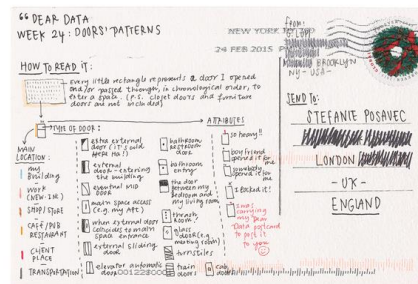 “ DEAR DATA
WEEK 24: DOORS' PATTERNS
HOW TO READ IT:
Every little rectangle represents a door I opened
and/or passed through, in chronological order, to
enter a space. (P.S. closet doors and furniture
doors are not included)
TYPE OF DOOR:
MAIN
LOCATION:
my
Building
WORK
(NEW-INC)
SHOP/STORE
CAFÉ/PUB
RESTAURANT
CLIENT
PLACE
TRANSPORTATION
extra external
door
external
door - entering
the building
main space access
(e.g. my APT)
when external door
collicides to main
space entrance
external sliding
door
elevator automatic
doors
bathroom
restroom
door
bathroom
entry
the door between
my bedroom and
my living room
glass
door (e.g.
meeting room)
turnstiles
train
doors
cab
doors
ATTRIBUTES
so heavy!!
boyfriend
opened it for
me
somebody
opened it for
me
I locked it!
I was
carrying
my
Data postcard
to post it
to you
NEW YORK NY
24 FEB 2015 P
from:
BROOKLYN
NY - USA -
SEND TO:
STEFANIE POSAVEC
LONDON
- UK -
ENGLAND